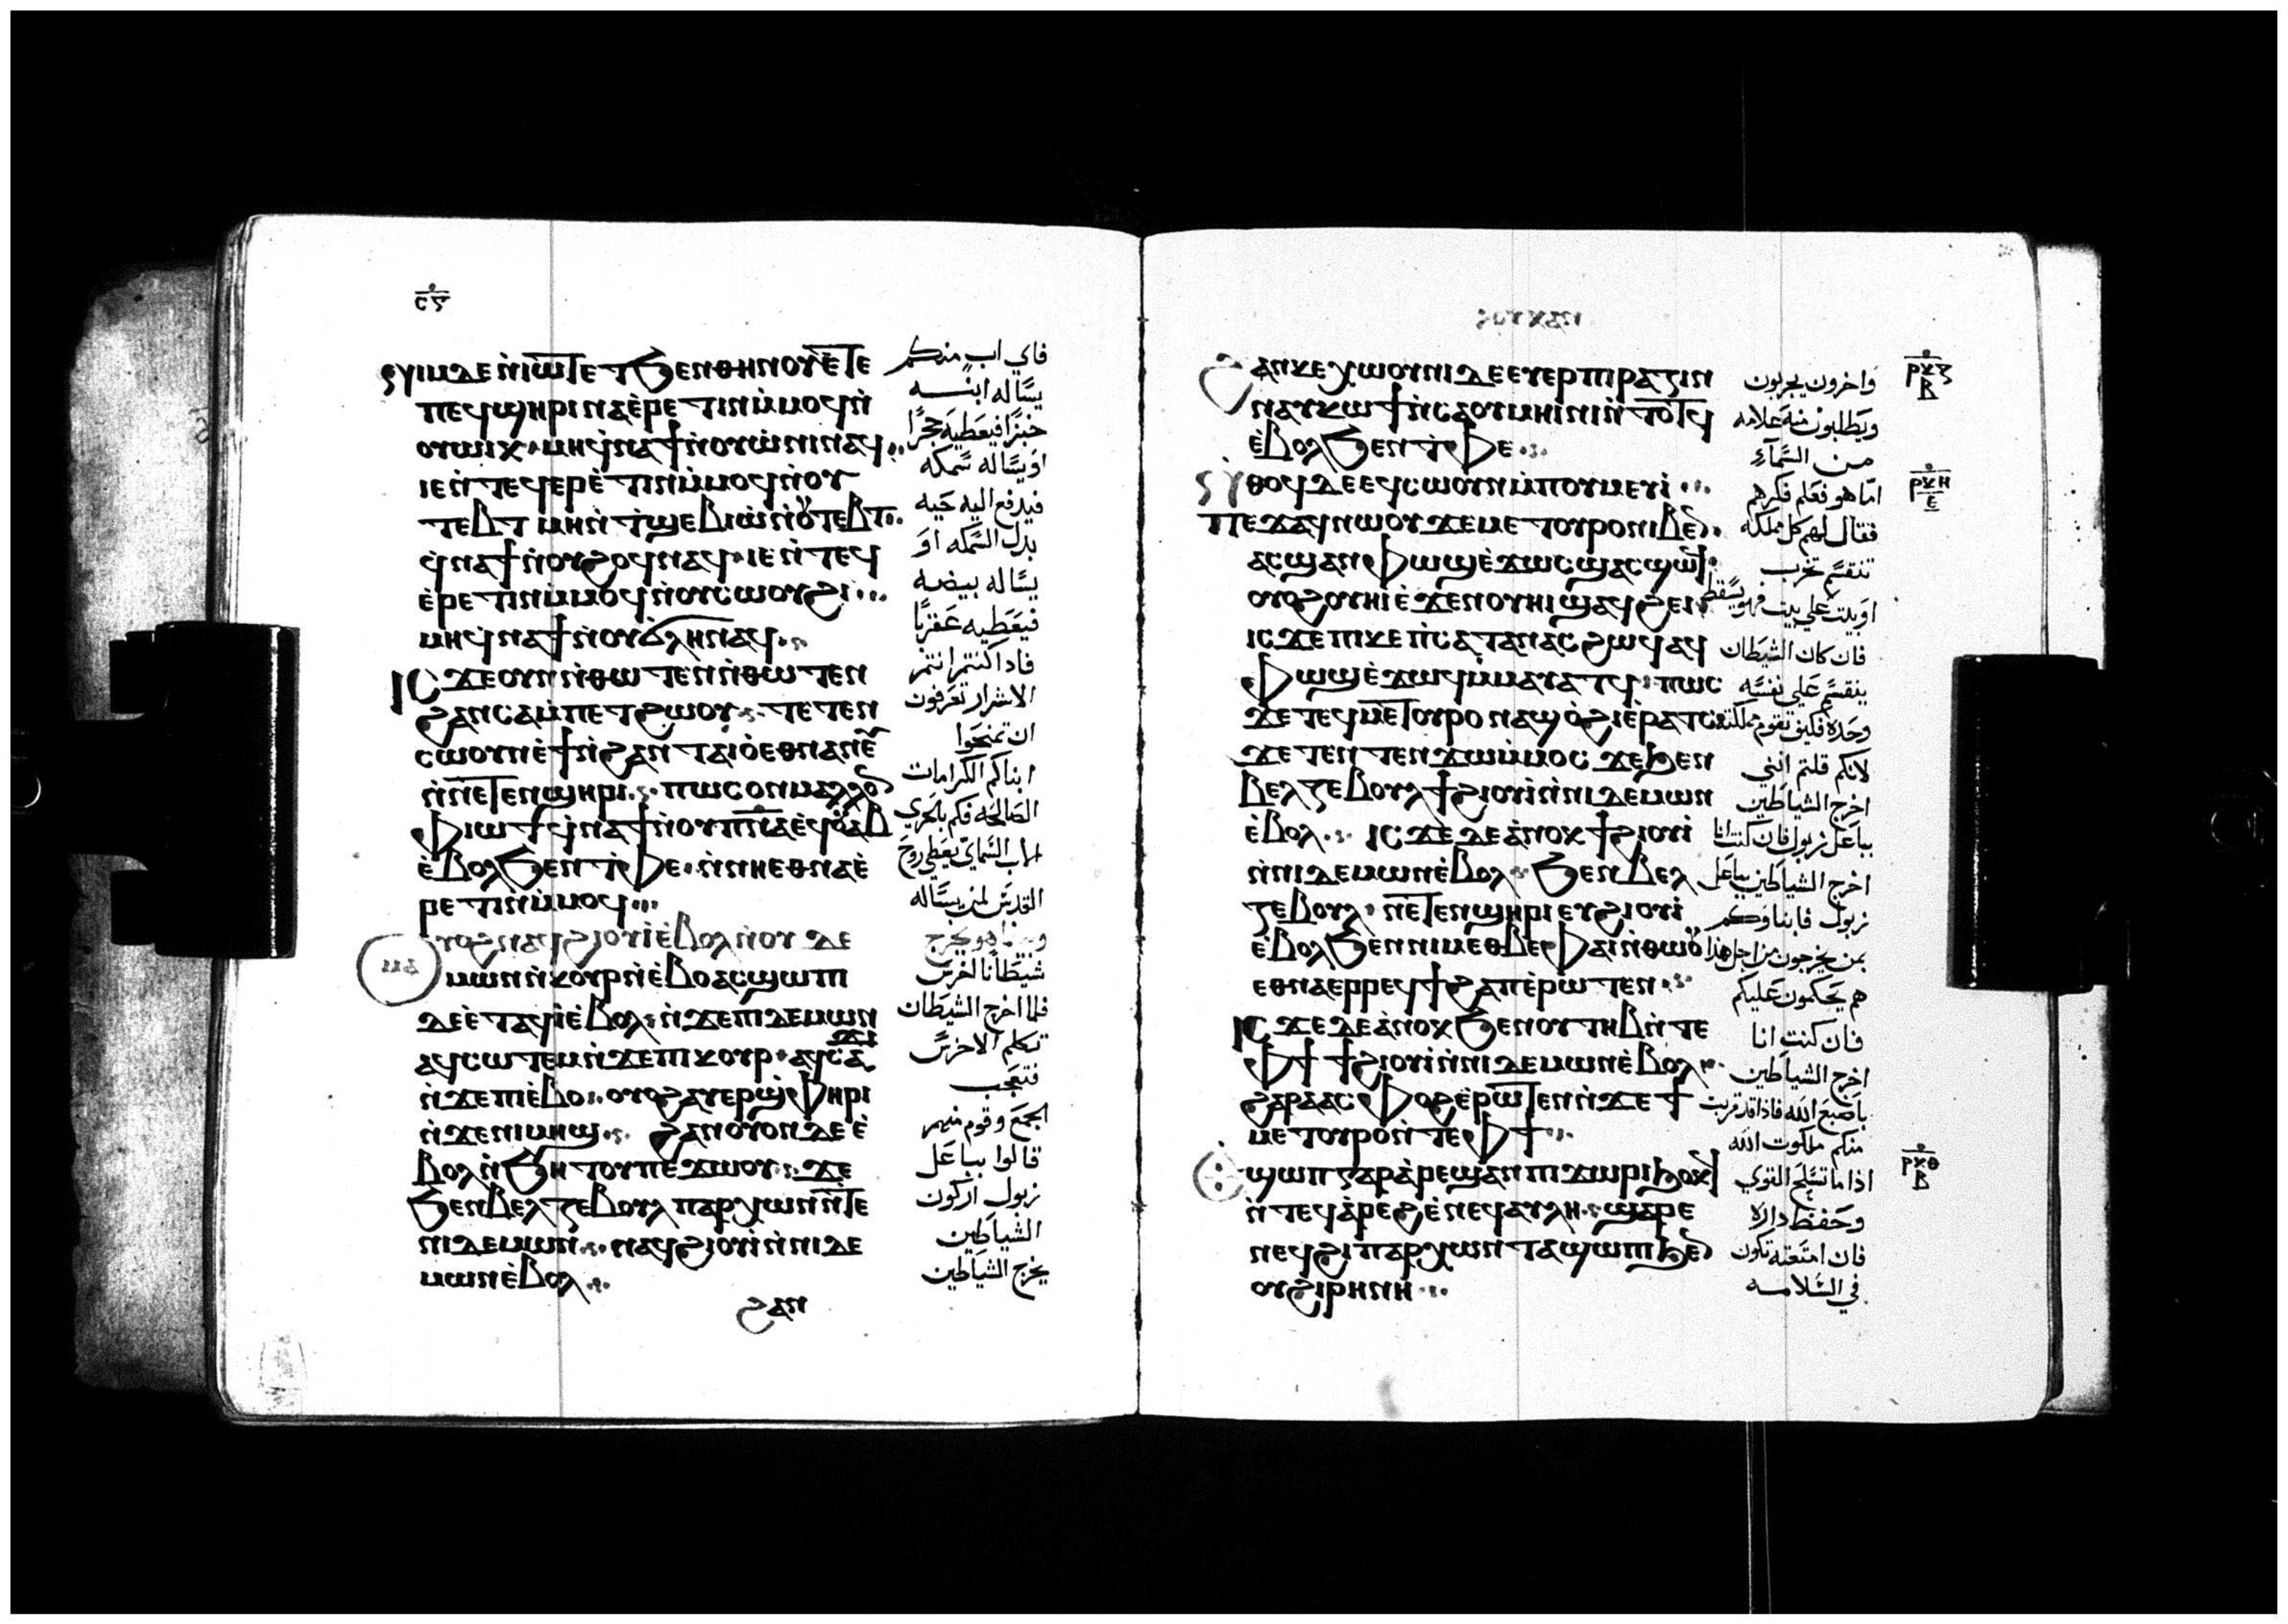 ⲥⲋ
ⲛⲓⲙ ⲇⲉ ⲛ̀ⲓⲱⲧ ⲉⲧϧⲉⲛ ⲑⲏⲛⲟⲩ ⲉ̀ⲧⲉ
ⲡⲉϥϣⲏⲣⲓ ⲛⲁⲉ̀ⲣⲉⲧⲓⲛ ⲙ̀ⲙⲟϥ ⲛ̀
ⲟⲩⲱⲓⲕ ⲙⲏ ϥ̀ⲛⲁϯ ⲛ̀ⲟⲩⲱ̀ⲛⲓ ⲛⲁϥ
ⲓⲉ ⲛ̀ⲧⲉϥⲉⲣⲉ̀ⲧⲓⲛ ⲙ̀ⲙⲟϥ ⲛ̀ⲟⲩ
ⲧⲉⲃⲧ ⲙⲏ ⲛ̀ⲧ̀ϣⲉⲃⲓⲱ̀ ⲛ̀ⲟⲩⲧⲉⲃⲧ
ϥ̀ⲛⲁϯ ⲛ̀ⲟⲩϩⲟϥ ⲛⲁϥ ⲓⲉ ⲛ̀ⲧⲉϥ
ⲉ̀ⲣⲉⲧⲓⲛ ⲙ̀ⲙⲟϥ ⲛ̀ⲟⲩⲥⲱⲟⲩϩⲓ
ⲙⲏ ϥ̀ⲛⲁϯ ⲛ̀ⲟⲩϭⲗⲏ ⲛⲁϥ
ⲓⲥϫⲉ ⲟⲩⲛ ⲛ̀ⲑⲱⲧⲉⲛ ⲛ̀ⲑⲱⲧⲉⲛ
ϩⲁⲛⲥⲁⲙ̀ⲡⲉⲧϩⲱⲟⲩ ⲧⲉⲧⲉⲛ
ⲥⲱⲟⲩⲛ ⲉ̀ϯ ⲛ̀ϩⲁⲛⲧⲁⲓⲟ ⲉⲑⲛⲁⲛⲉⲩ
ⲛ̀ⲛⲉⲧⲉⲛϣⲏⲣⲓ ⲡⲱⲥⲟⲛ ⲙⲁⲗⲗⲟⲛ
ⲫⲓⲱⲧ ϥ̀ⲛⲁϯ ⲛ̀ⲟⲩⲡⲛⲁ ⲉϥⲟⲩⲁⲃ
ⲉ̀ⲃⲟⲗ ϧⲉⲛ ⲧ̀ⲫⲉ ⲛ̀ⲛⲏ ⲉⲑⲛⲁⲉ̀
ⲣⲉⲧⲓⲛ ⲙ̀ⲙⲟϥ
ⲟⲩⲟϩ ⲛⲁϥϩⲓⲟⲩⲓ̀ ⲉ̀ⲃⲟⲗ ⲛ̀ⲟⲩⲇⲉ
ⲙⲱⲛ ⲛ̀ⲕⲟⲩⲣ ⲛ̀ⲉ̀ⲃⲟ ⲁⲥϣⲱⲡⲓ
ⲇⲉ ⲉⲧⲁϥⲓ̀ ⲉ̀ⲃⲟⲗ ⲛ̀ϫⲉ ⲡⲓⲇⲉⲙⲱⲛ
ⲁϥⲥⲱⲧⲉⲙ ⲛ̀ϫⲉ ⲡⲓⲕⲟⲩⲣ ⲁϥⲥⲁϫⲓ
ⲛ̀ϫⲉ ⲡⲓⲉ̀ⲃⲟ ⲟⲩⲟϩ ⲁⲩⲉⲣϣ̀ⲫⲏⲣⲓ
ⲛ̀ϫⲉ ⲛⲓⲙⲏϣ ϩⲁⲛⲟⲩⲟⲛ ⲇⲉ ⲉ̀
ⲃⲟⲗ ⲛ̀ϧⲏⲧⲟⲩ ⲡⲉϫⲱⲟⲩ ϫⲉ
ϧⲉⲛ ⲃⲉⲗⲍⲉⲃⲟⲩⲗ ⲡⲁⲣⲭⲱⲛ ⲛ̀ⲧⲉ
ⲛⲓⲇⲉⲙⲱⲛ ⲛⲁϥϩⲓⲟⲩⲓ̀ ⲛ̀ⲛⲓⲇⲉ
ⲙⲱⲛ ⲉ̀ⲃⲟⲗ
ϩⲁⲛ
فاي اب منكم
يساله ابنه
خبزا فيعطيه حجرا
او يساله سمكه
فيدفع اليه حيه
بدل السمكه او
يساله بيضه
فيعطيه عقربا
فاذا كنتم انتم
الاشرار تعرفون
ان تمنحوا
ابناكم الكرامات
الصالحه فكم بالحري
الاب السماي يعطي روح
القدس لمن يساله
وبينما هو يخرج
شيطانا اخرس
فلما اخرج الشيطان
تكلم الاخرس
فتعجب
الجمع وقوم منهم
قالوا بباعل
زبول اركون
الشياطين
يخرج الشياطين
ϩⲁⲛⲕⲉⲭⲱⲟⲩⲛⲓ ⲇⲉ ⲉⲩⲉⲣⲡⲓⲣⲁⲍⲓⲛ
ⲛⲁⲩⲕⲱϯ ⲛ̀ⲥⲁ ⲟⲩⲙⲏⲓⲛⲓ ⲛ̀ⲧⲟⲧϥ
ⲉ̀ⲃⲟⲗ ϧⲉⲛ ⲧ̀ⲫⲉ
ⲛ̀ⲑⲟϥ ⲇⲉ ⲉϥⲥⲱⲟⲩⲛ ⲙ̀ⲡⲟⲩⲙⲉⲩⲓ̀
ⲡⲉϫⲁϥ ⲛⲱⲟⲩ ϫⲉ ⲙⲉⲧⲟⲩⲣⲟ ⲛⲓⲃⲉⲛ
ⲁⲥϣⲁⲛⲫⲱϣ ⲉ̀ϫⲱⲥ ϣⲁⲥϣⲱϥ
ⲟⲩⲟϩ ⲟⲩⲏⲓ ⲉ̀ϫⲉⲛ ⲟⲩⲏⲓ ϣⲁϥϩⲉⲓ
ⲓⲥϫⲉ ⲡⲓⲕⲉⲡ̀ⲥⲁⲧⲁⲛⲁⲥ ϩⲱϥ ⲁϥ
ⲫⲱϣ ⲉ̀ϫⲱϥ ⲙ̀ⲙⲁⲩⲁⲧϥ ⲡⲱⲥ
ϫⲉ ⲧⲉϥⲙⲉⲧⲟⲩⲣⲟ ⲛⲁϣⲟ̀ϩⲓ ⲉ̀ⲣⲁⲧⲥ
ϫⲉ ⲧⲉⲧⲉⲛϫⲱ ⲙ̀ⲙⲟⲥ ϫⲉ ϧⲉⲛ
ⲃⲉⲗⲍⲉⲃⲟⲩⲗ ϯϩⲓⲟⲩⲓ̀ ⲛ̀ⲛⲓⲇⲉⲙⲱⲛ
ⲉ̀ⲃⲟⲗ ⲓⲥϫⲉ ⲇⲉ ⲁ̀ⲛⲟⲕ ϯϩⲓⲟⲩⲓ̀
ⲛ̀ⲛⲓⲇⲉⲙⲱⲛ ⲉ̀ⲃⲟⲗ ϧⲉⲛ ⲃⲉⲗ
ⲍⲉⲃⲟⲩⲗ ⲛⲉⲧⲉⲛϣⲏⲣⲓ ⲉⲩϩⲓⲟⲩⲓ̀
ⲉ̀ⲃⲟⲗ ϧⲉⲛ ⲛⲓⲙ ⲉⲑⲃⲉ ⲫⲁⲓ ⲛ̀ⲑⲱⲟⲩ
ⲉⲑⲛⲁⲉⲣⲣⲉϥϯϩⲁⲡ ⲉ̀ⲣⲱⲧⲉⲛ
ⲓⲥϫⲉ ⲇⲉ ⲁ̀ⲛⲟⲕ ϧⲉⲛ ⲟⲩⲧⲏⲃ ⲛ̀ⲧⲉ
ⲫϯ ϯϩⲓⲟⲩⲓ̀ ⲛ̀ⲛⲓⲇⲉⲙⲱⲛ ⲉ̀ⲃⲟⲗ
ϩⲁⲣⲁ ⲁⲥⲫⲟϩ ⲉ̀ⲣⲱⲧⲉⲛ ⲛ̀ϫⲉ ϯ
ⲙⲉⲧⲟⲩⲣⲟ ⲛ̀ⲧⲉ ⲫϯ
ⲉϣⲱⲡ ⲅⲁⲣ ⲁ̀ⲣⲉϣⲁⲛ ⲡⲓϫⲱⲣⲓ ϧⲟⲕϥ
ⲛ̀ⲧⲉϥⲁ̀ⲣⲉϩ ⲉ̀ ⲧⲉϥⲁⲩⲗⲏ ϣⲁⲣⲉ
ⲛⲉϥϩⲩⲡⲁⲣⲭⲱⲛⲧⲁ ϣⲱⲡⲓ ϧⲉⲛ
ⲟⲩϩⲓⲣⲏⲛⲏ
واخرون يجربون
ويطلبون منه علامه
من السمآء
اما هو فعلم فكرهم
فقال لهم كل مملكه
تنقسم تخرب
او بيت علي بيت فهو يسقط
فان كان الشيطان
ينقسم علي نفسه
وحده فكيف تقوم مملكته
لانكم قلتم انني
اخرج الشياطين
بباعل زبول فان كنت انا
اخرج الشياطين بباعل
زبول فابناوكم
بمن يخرجون من اجل هذا
هم يحكمون عليكم
فان كنت انا
اخرج الشياطين
باصبع الله فاذا قد قربت
منكم ملكوت الله
اذا ما تسلح القوي
وحفظ داره
فان امتعته تكون
في السلامه
ⲣⲕⲍ
ⲃ
ⲣⲕⲏ
ⲉ
ⲣⲕⲑ
ⲃ